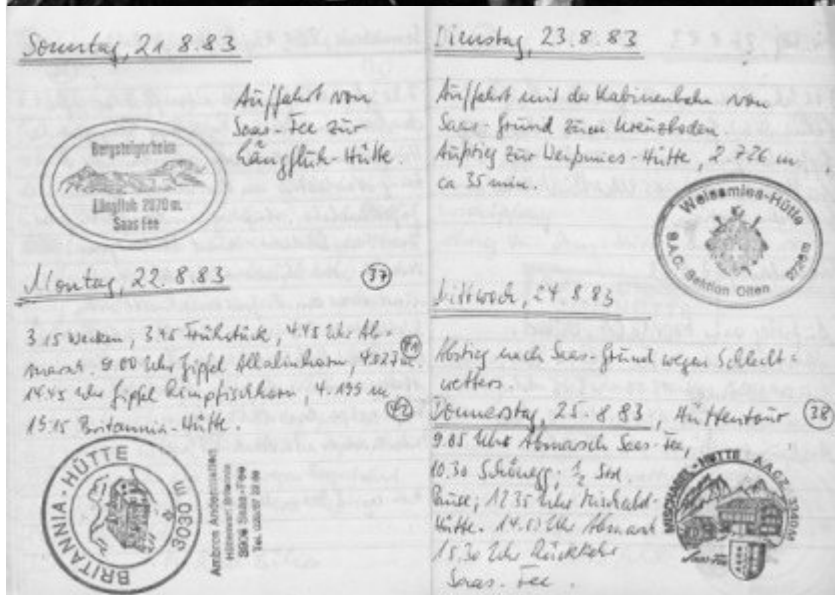 Sonntag, 21.8.83
Auffahrt von
Saas-Fee zur
Längfluh-Hütte.
Bergsteigerheim
Längfluh 2870 m.
Saas Fee
Montag, 22.8.83 (37)
3.15 Wecken, 3.45 Frühstück, 4.45 Uhr Ab-
marsch. 9.00 Uhr Gipfel Allalinhorn, 4.027 m.
14.45 Uhr Gipfel Rimpfischhorn, 4.199 m
19.15 Britannia-Hütte.
BRITANNIA-HÜTTE
3030 m
Ambros Andenmatten
Hüttenwart Britannia
3906 Saas-Fee
Dienstag, 23.8.83
Auffahrt mit der Kabinenbahn von
Saas-Grund zum Kreuzboden
Aufstieg zur Weißmies-Hütte, 2.726 m
ca 35 min.
Weissmies-Hütte
S.A.C. Sektion Olten 2726m
Mittwoch, 24.8.83
Abstieg nach Saas-Grund wegen Schlecht=
wetters.
Donnerstag, 25.8.83, Hüttentour (38)
9.05 Uhr Abmarsch Saas-Fee,
10.30 Schönegg, 1/2 Std
Pause; 12.35 Uhr Mischabel-
Hütte. 14.50 Uhr Abmarsch
15.30 Uhr Rückkehr
Saas-Fee.
MISCHABEL-HÜTTE A.A.C.Z. 3340M
Saas-Fee